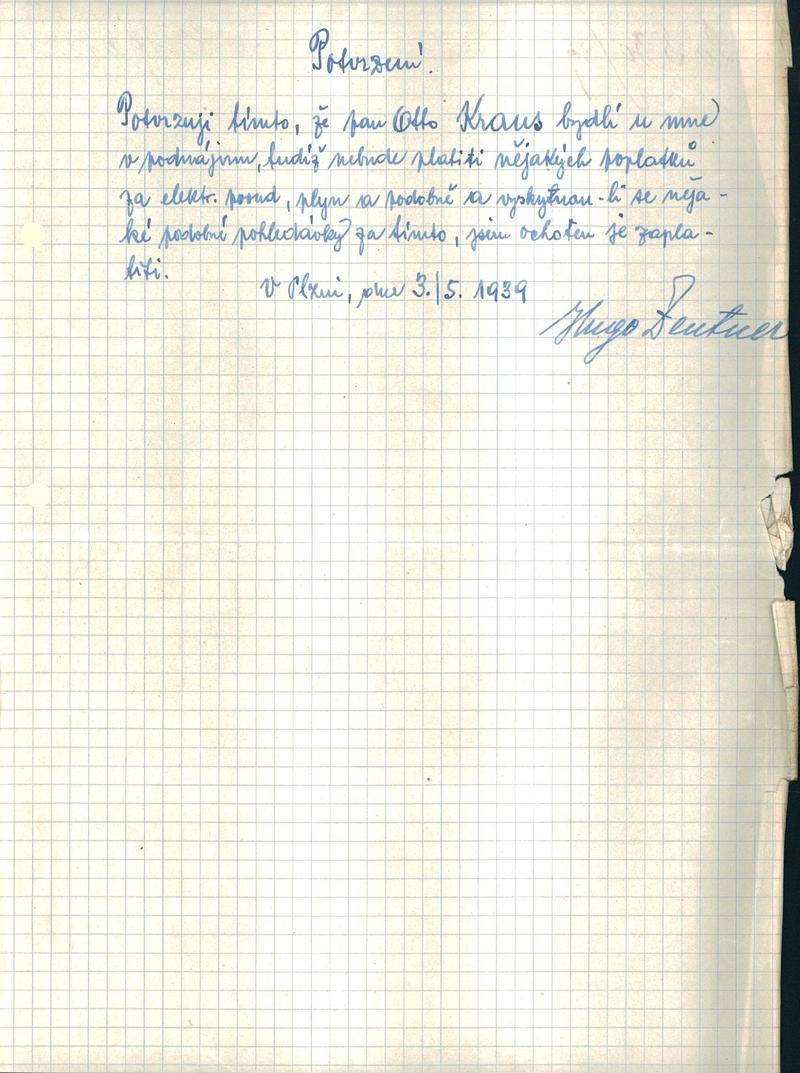 Potvrzení.
Potvrzuji tímto, že pan Otto Kraus bydlí u mne
v podnájmu, tudíž nebude platiti nějakých poplatků
za elektr. proud, plyn a podobně a vyskytnou-li se něja-
ké podobné pohledávky za tímto, jsem ochoten je zapla-
titi.
V Plzni, dne 3./5. 1939
Hugo Bentner